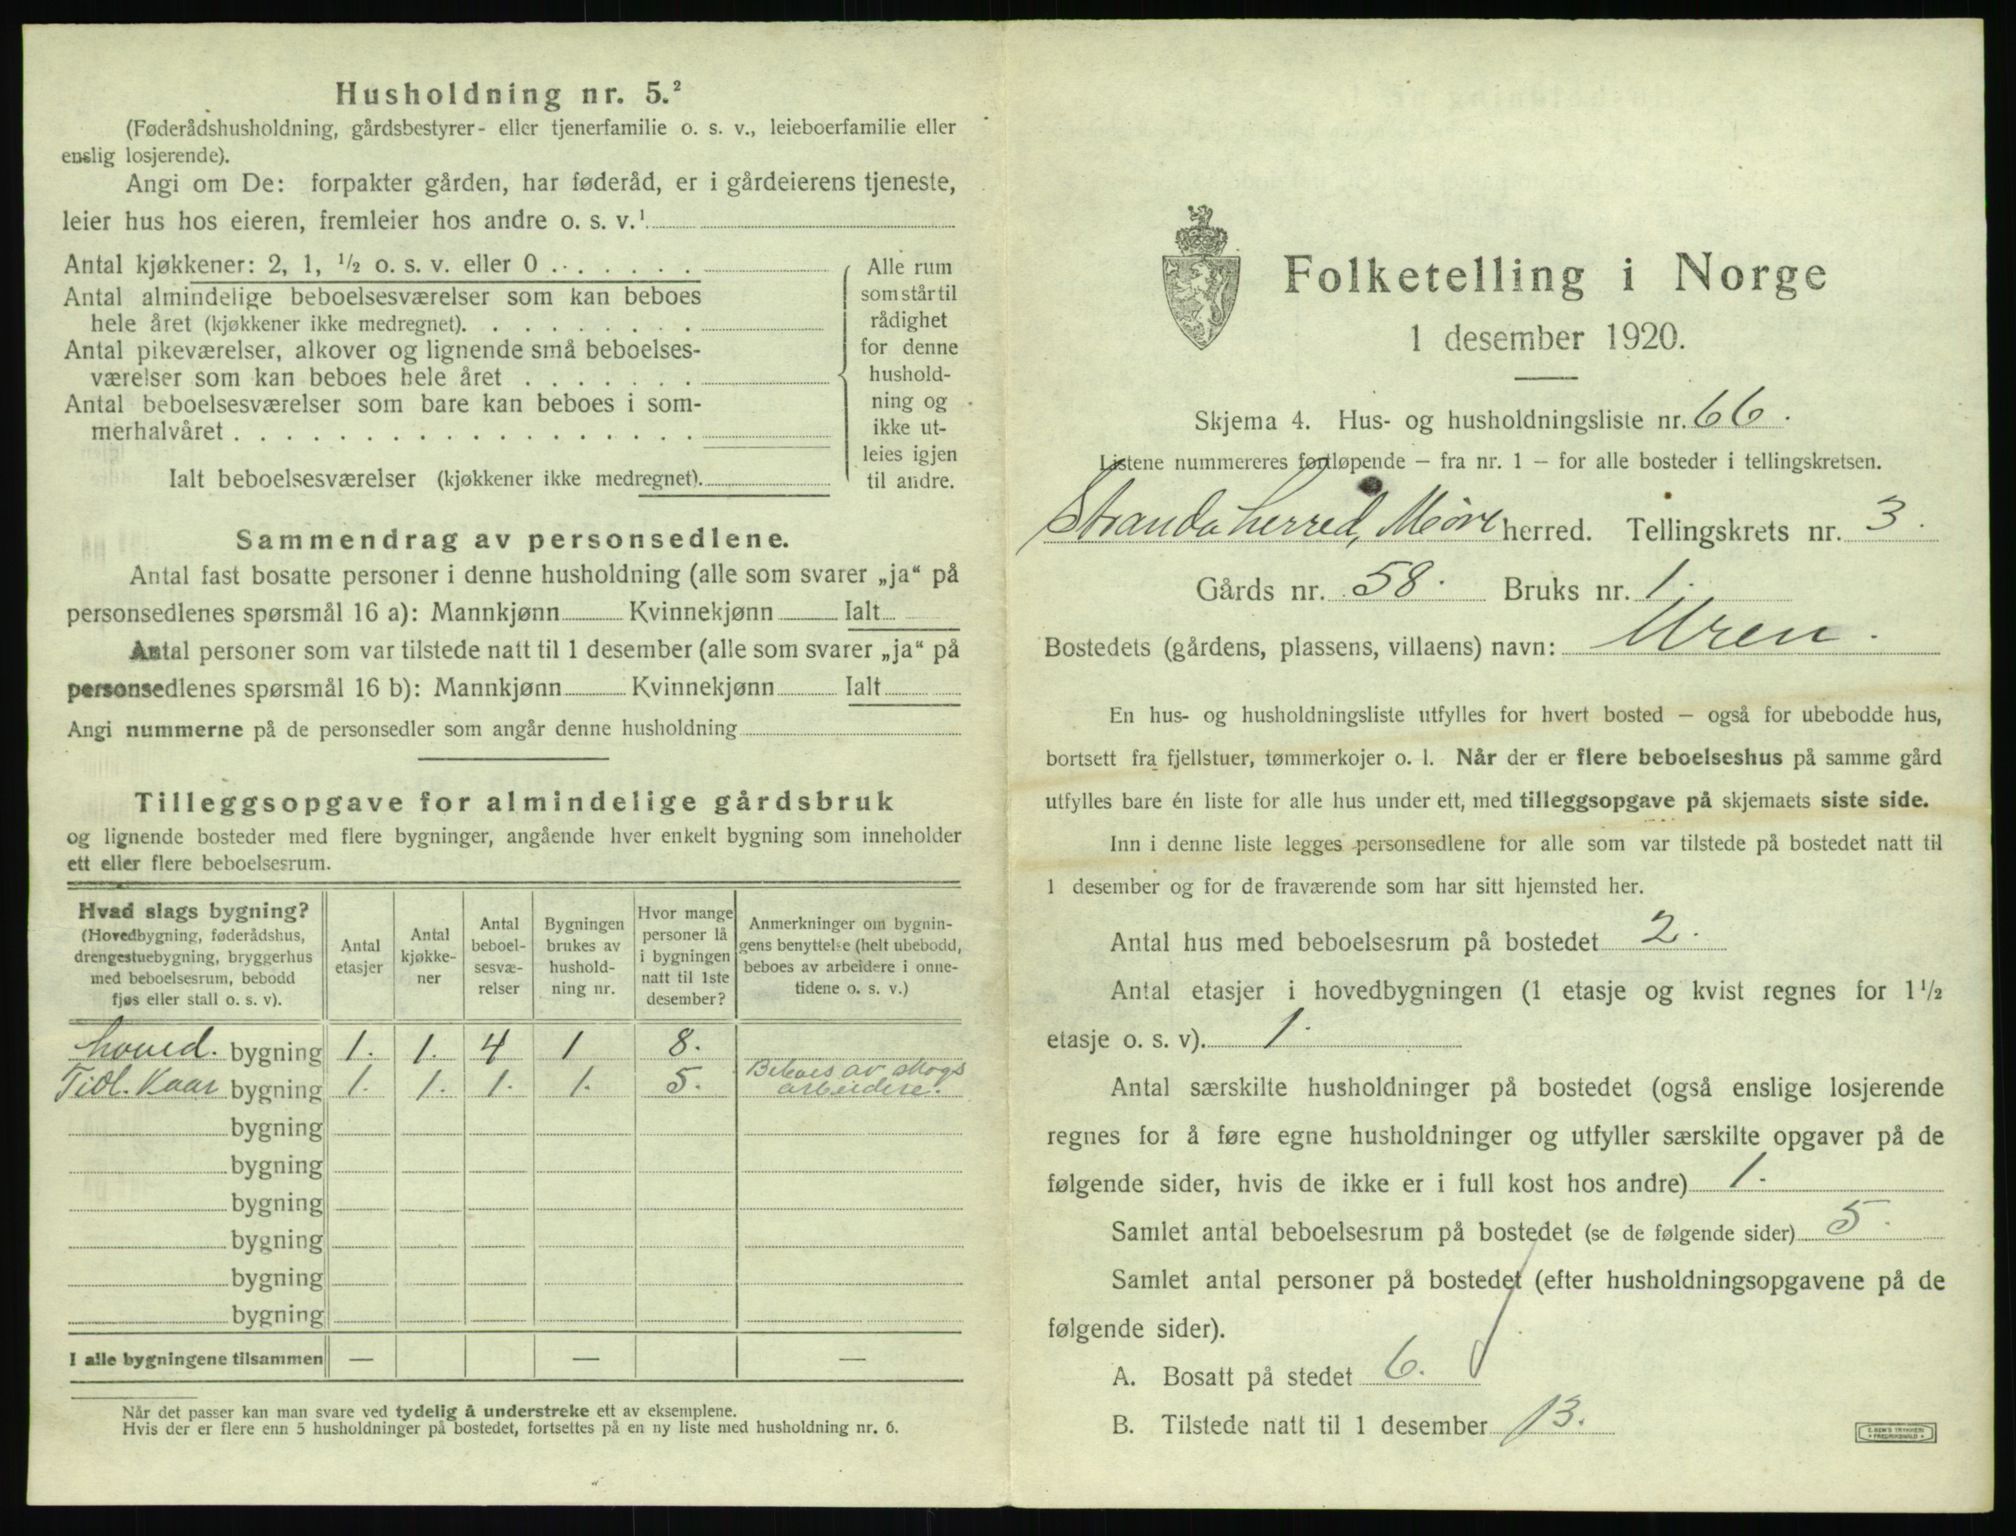 Husholdning nr. 5.²
(Føderådshusholdning, gårdsbestyrer- eller tjenerfamilie o. s. v., leieboerfamilie eller
enslig losjerende).
Angi om De: forpakter gården, har føderåd, er i gårdeierens tjeneste,
leier hus hos eieren, fremleier hos andre o. s. v.¹
Antal kjøkkener: 2, 1, ½ o. s. v. eller 0 . . . . . .
Antal almindelige beboelsesværelser som kan beboes
hele året (kjøkkener ikke medregnet). . . . . . . . .
Antal pikeværelser, alkover og lignende små beboelses-
værelser som kan beboes hele året . . . . . . .
Antal beboelsesværelser som bare kan beboes i som-
merhalvåret . . . . . . . . . . . . . . . . . .
Ialt beboelsesværelser (kjøkkener ikke medregnet).
Alle rum
som står til
rådighet
for denne
hushold-
ning og
ikke ut-
leies igjen
til andre.
Sammendrag av personsedlene.
Antal fast bosatte personer i denne husholdning (alle som svarer „ja“ på
personsedlenes spørsmål 16 a): Mannkjønn Kvinnekjønn Ialt
Antal personer som var tilstede natt til 1 desember (alle som svarer „ja“ på
personsedlenes spørsmål 16 b): Mannkjønn Kvinnekjønn Ialt
Angi nummerne på de personsedler som angår denne husholdning
Tilleggsopgave for almindelige gårdsbruk
og lignende bosteder med flere bygninger, angående hver enkelt bygning som inneholder
ett eller flere beboelsesrum.
Hvad slags bygning?
(Hovedbygning, føderådshus,
drengestuebygning, bryggerhus
med beboelsesrum, bebodd
fjøs eller stall o. s. v).
Antal
etasjer
Antal
kjøkke-
ner
Antal
beboel-
sesvæ-
relser
Bygningen
brukes av
hushold-
ning nr.
Hvor mange
personer lå
i bygningen
natt til 1ste
desember?
Anmerkninger om bygnin-
gens benyttelse (helt ubebodd,
beboes av arbeidere i onne-
tidene o. s. v.)
Hoved. bygning 1. 1. 4 1 8.
Tidl. Kaar bygning 1. 1. 1. 1. 5. Beboes av skogs
arbeidere.
bygning
bygning
bygning
bygning
bygning
bygning
I alle bygningene tilsammen — — —
Når det passer kan man svare ved tydelig å understreke ett av eksemplene.
Hvis der er flere enn 5 husholdninger på bostedet, fortsettes på en ny liste med husholdning nr. 6.
Folketelling i Norge
1 desember 1920.
Skjema 4. Hus- og husholdningsliste nr. 66.
Listene nummereres fortløpende – fra nr. 1 – for alle bosteder i tellingskretsen.
Stranda herred, Møre herred. Tellingskrets nr. 3.
Gårds nr. 58. Bruks nr. 1.
Bostedets (gårdens, plassens, villaens) navn: Uren.
En hus- og husholdningsliste utfylles for hvert bosted – også for ubebodde hus,
bortsett fra fjellstuer, tømmerkojer o. l. Når der er flere beboelseshus på samme gård
utfylles bare én liste for alle hus under ett, med tilleggsopgave på skjemaets siste side.
Inn i denne liste legges personsedlene for alle som var tilstede på bostedet natt til
1 desember og for de fraværende som har sitt hjemsted her.
Antal hus med beboelsesrum på bostedet 2.
Antal etasjer i hovedbygningen (1 etasje og kvist regnes for 1½
etasje o. s. v). 1.
Antal særskilte husholdninger på bostedet (også enslige losjerende
regnes for å føre egne husholdninger og utfyller særskilte opgaver på de
følgende sider, hvis de ikke er i full kost hos andre) 1.
Samlet antal beboelsesrum på bostedet (se de følgende sider) 5.
Samlet antal personer på bostedet (efter husholdningsopgavene på de
følgende sider).
A. Bosatt på stedet 6.
B. Tilstede natt til 1 desember 13.